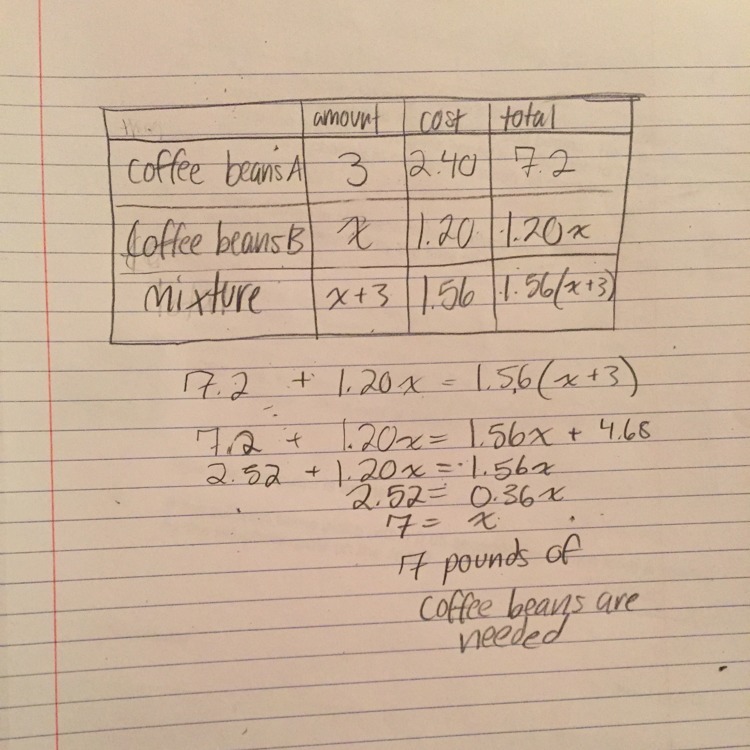 amount cost total
coffee beans A 3 2.40 7.2
Coffee beans B x 1.20 1.20x
mixture x+3 1.56 1.56(x+3)
7.2 + 1.20x = 1.56(x+3)
7.2 + 1.20x = 1.56x + 4.68
2.52 + 1.20x = 1.56x
2.52 = 0.36x
7 = x
7 pounds of
coffee beans are
needed